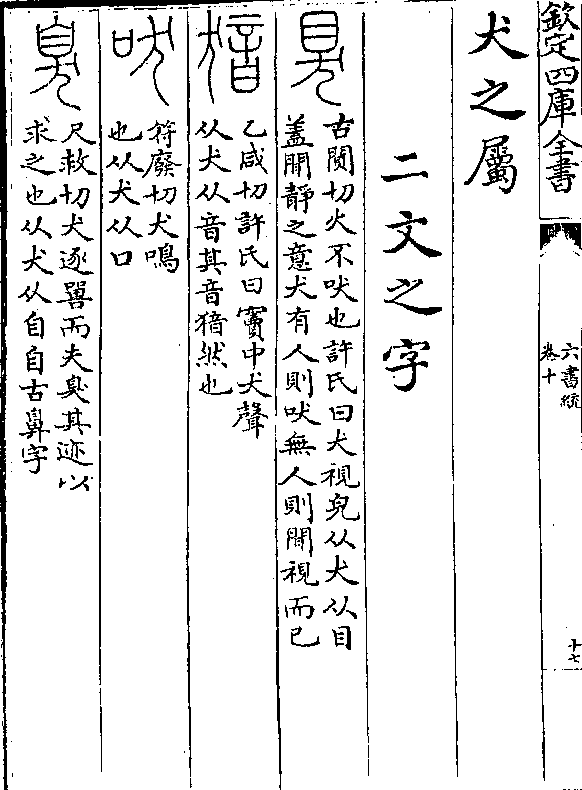 欽定四庫全書
六書統
卷十
十七
犬之屬
二文之字
狊
古闃切犬不吠也許氏曰犬視皃从犬从目
蓋閒靜之意犬有人則吠無人則閒視而已
猲
乙咸切許氏曰竇中犬聲
从犬从音其音猲然也
吠
符廢切犬鳴
也从犬从口
臭
尺救切犬逐獸而失臭其迹以
求之也从犬从自自古鼻字